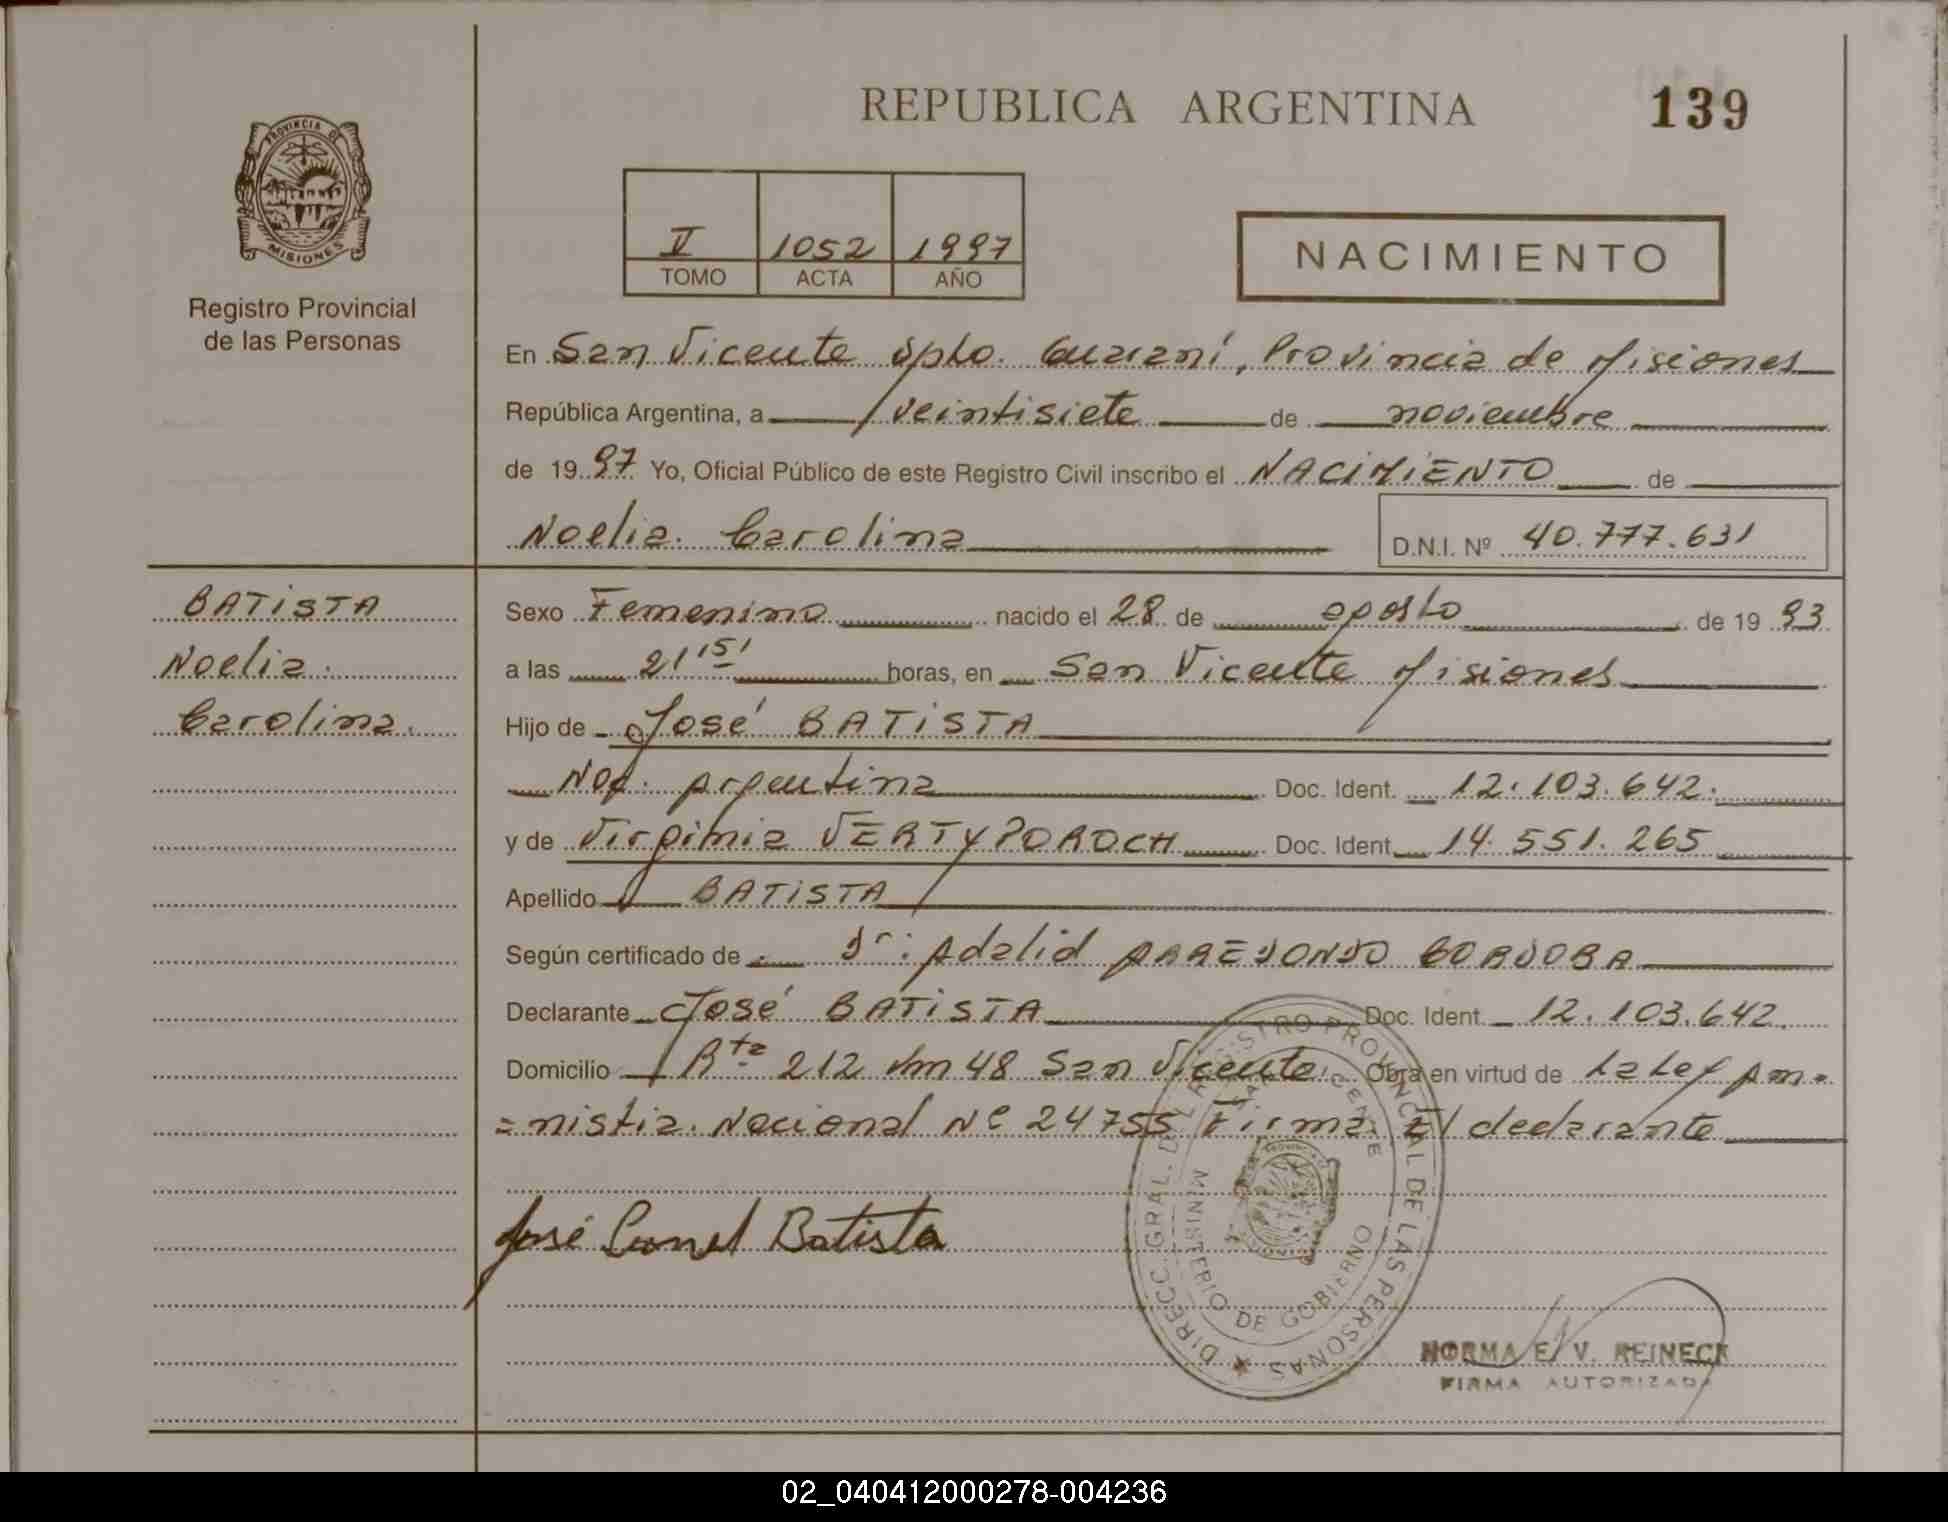 REPUBLICA ARGENTINA
139
PROVINCIA DE
MISIONES
Registro Provincial
de las Personas
V 1052 1997
TOMO ACTA AÑO
NACIMIENTO
En San Vicente Dpto. Guaraní, Provincia de Misiones
República Argentina, a veintisiete de noviembre
de 1997 Yo, Oficial Público de este Registro Civil inscribo el NACIMIENTO de
Noelia Carolina
D.N.I. Nº 40.777.631
BATISTA
Noelia
Carolina.
Sexo Femenino nacido el 28 de agosto de 1993
a las 21,15' horas, en San Vicente Misiones
Hijo de José BATISTA
Nac. Argentina Doc. Ident. 12.103.642.
y de Virginia VERTYPOROCH Doc. Ident. 14.551.265
Apellido BATISTA
Según certificado de Dr: Adalid ARREDONDO CORDOBA
Declarante José BATISTA Doc. Ident. 12.103.642.
Domicilio Rta 212 Km 48 San Vicente. Obra en virtud de La Ley Am=
=nistia Nacional Nº 24755 Firma El declarante
José Leonel Batista
DIRECC. GRAL. DEL REGISTRO PROVINCIAL DE LAS PERSONAS
SAN VICENTE
MINISTERIO DE GOBIERNO
NORMA E. V. REINECK
FIRMA AUTORIZADA
02_040412000278-004236